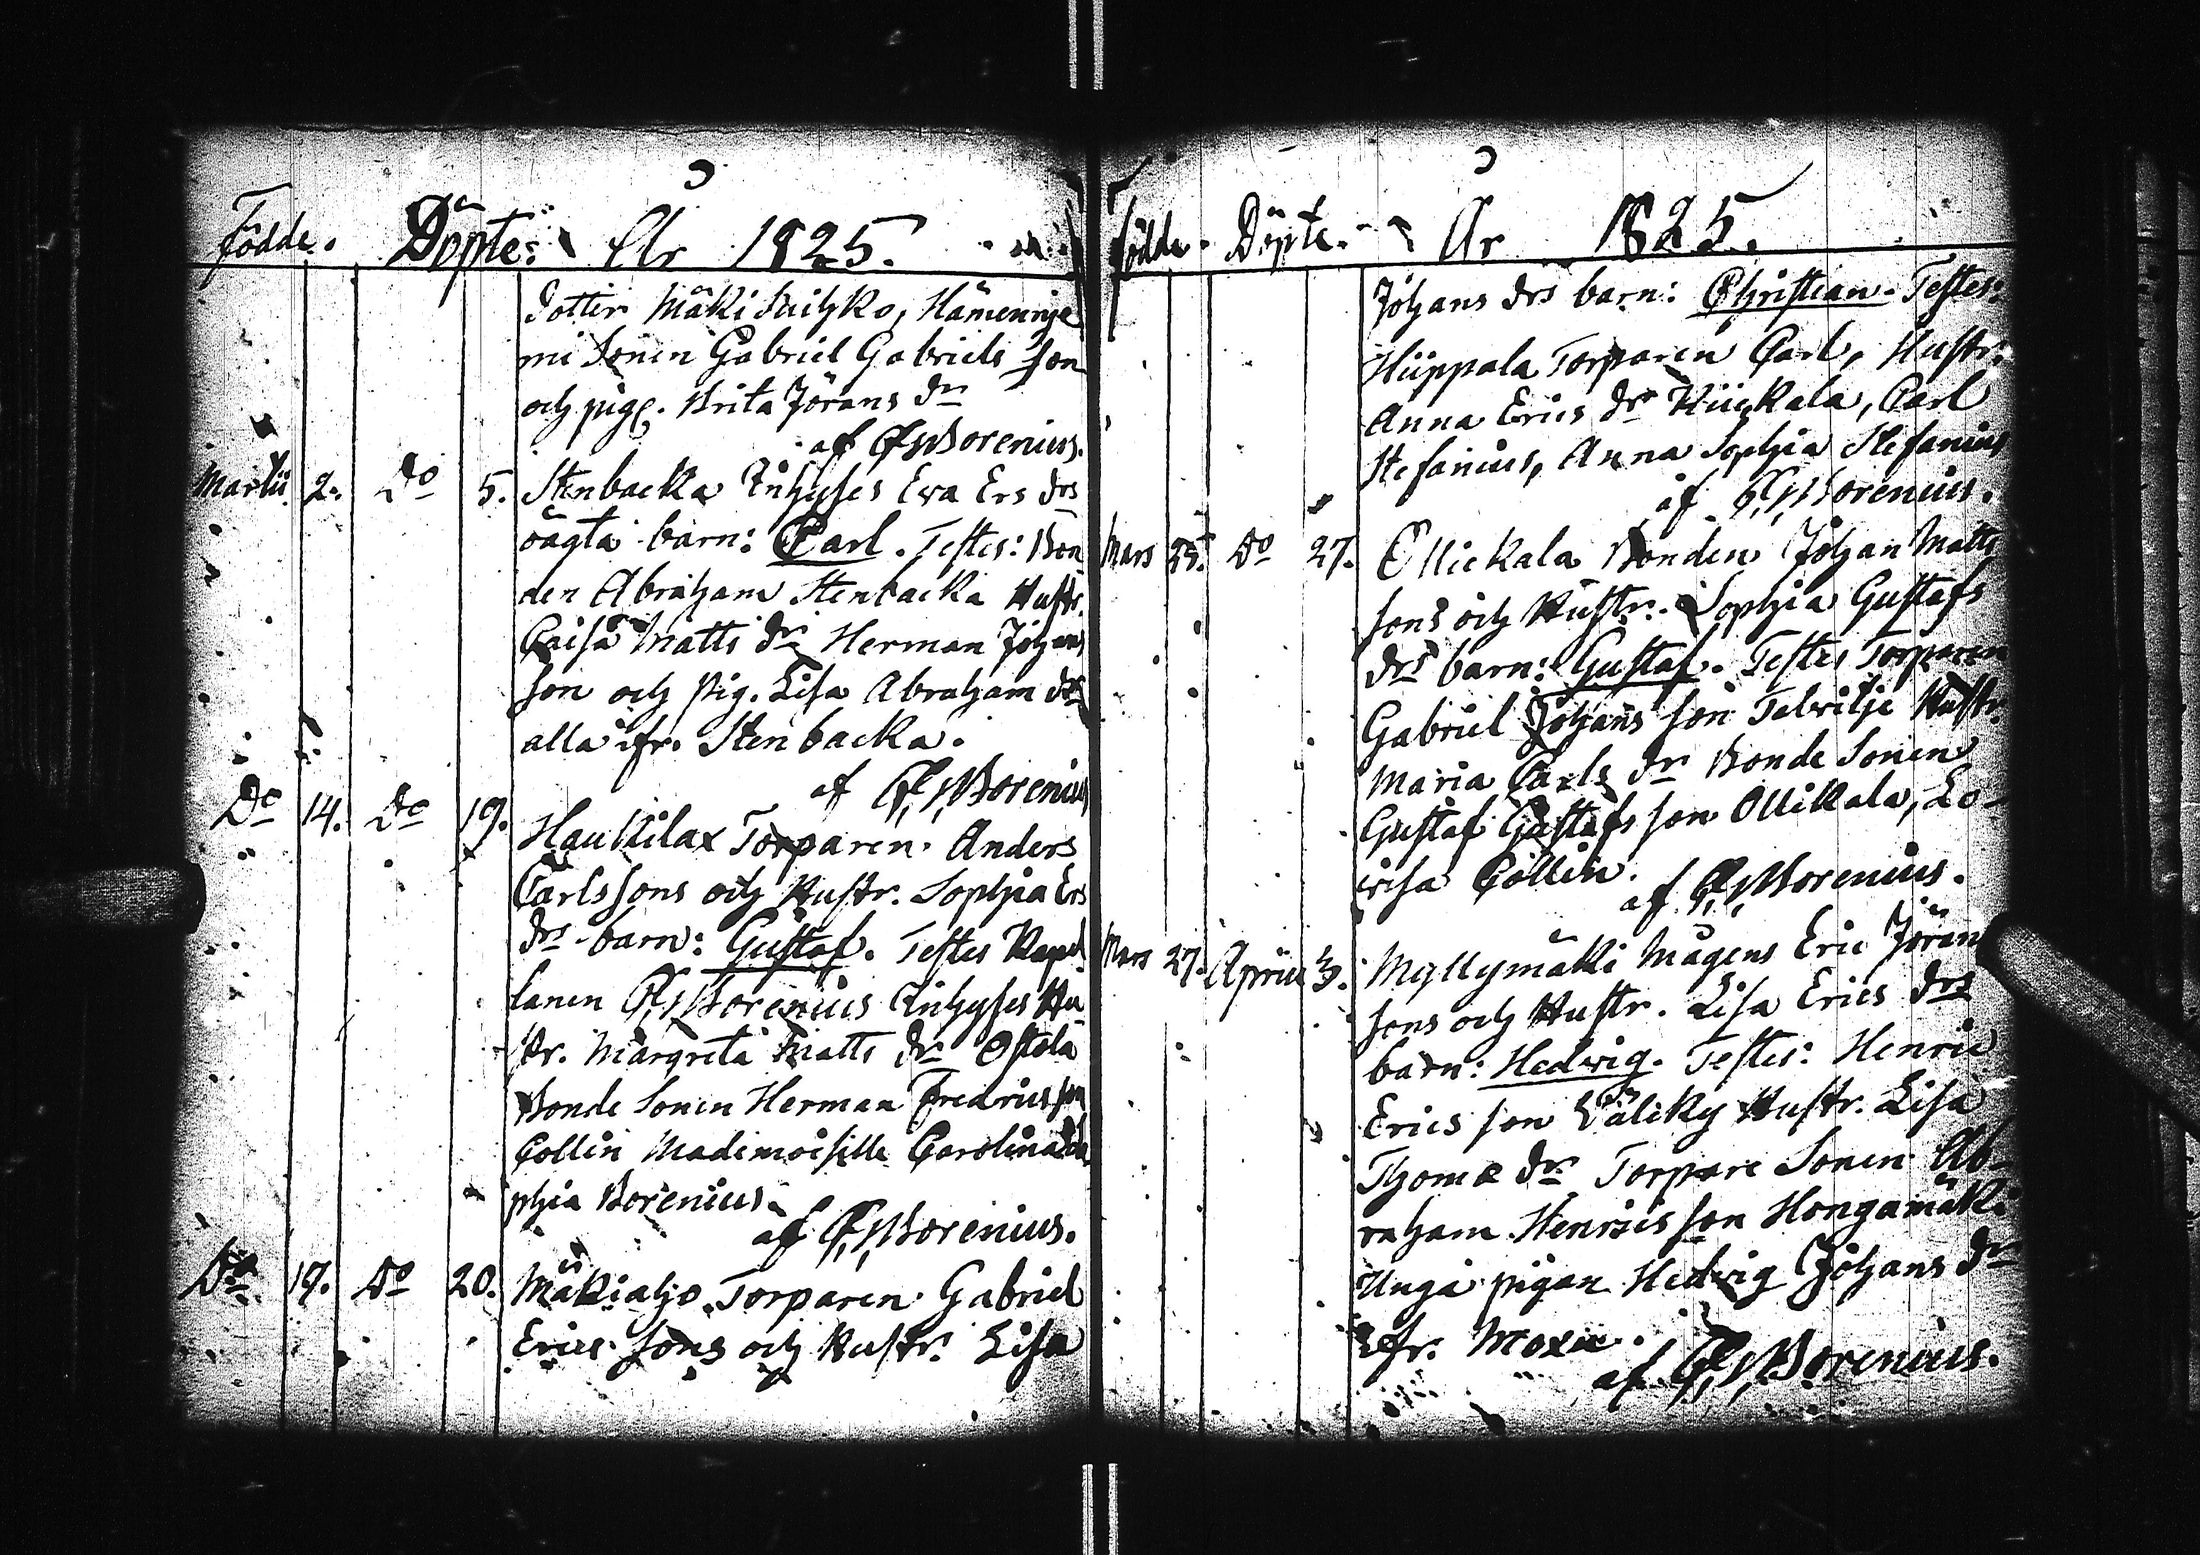 Födde. Döpte: År 1825.
Dotter Mäki Kuihko, Hämennje
mi Sonen Gabriel Gabriels Son
och pig. Brita Jörans dr
af C G Borenius.
Martii 2. Do 5. Stenbacka Inhyses Ewa Ers drs
oägta barn: Carl. Testes: Bon
den Abraham Stenbacka Hustr.
Caisa Matts dr Herman Johans
son och pig. Lisa Abraham dr
alla ifr. Stenbacka.
af C G Borenius
Do 14. Do 19. Haukilax Torparen Anders
Carlssons och Hustr. Sophia Ers
drs barn: Gustaf. Testes Kapel
lanen C G Borenius Inhyses Hu
str. Margreta Matts dr Ostola
Bonde Sonen Herman Fredricsson
Collin Madimoiselle Carolina So
phia Borenius
af C G Borenius.
Do 19. Do 20. Mäkiaho Torparen Gabriel
Erics sons och Hustr. Lisa
Födde. Döpte. År 1825.
Johans drs barn: Christian. Testes:
Hiippala Torparen Carl, Hustr.
Anna Erics dr Hiickala, Carl
Stefanius, Anna Sophia Stefanius
af C G Borenius.
Mars 25. Do 27. Ollickala Bonden Johan Matts
sons och Hustr. Sophia Gustafs
drs barn: Gustaf. Testes Torparen
Gabriel Johans son Telvilje Hustr.
Maria Carls dr Bonde Sonen
Gustaf Gustafs son Ollikala, Lo-
wisa Collin.
af C G Borenius.
Mars 27. Aprill 3. Myllymäki Mågens Eric Jörans
sons och Hustr. Lisa Erics drs
barn: Hedwig. Testes: Henric
Erics son Väliky Hustr. Lisa
Thomæ dr Torpare Sonen Ab-
raham Henrics son Hongamäki
Unga pigan Hedwig Johans dr
ifr. Moxii.
af C G Borenius.